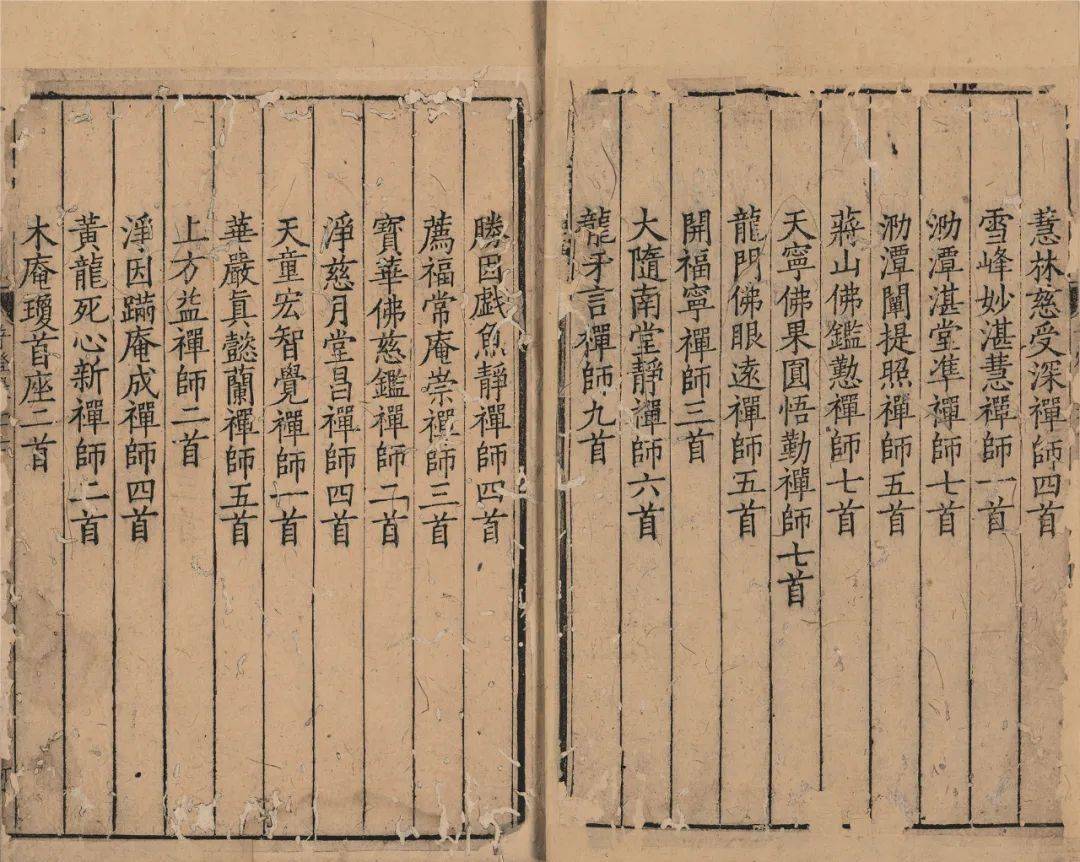 慧林慈受深禪師四首
雪峰妙湛慧禪師一首
泐潭湛堂準禪師七首
泐潭闡提照禪師五首
蔣山佛鑑懃禪師七首
天寧佛果圓悟勤禪師七首
龍門佛眼遠禪師五首
開福寧禪師三首
大隨南堂靜禪師六首
龍牙言禪師九首
勝因戲魚靜禪師四首
薦福常庵崇禪師三首
寳華佛慈鑑禪師二首
淨慈月堂昌禪師四首
天童宏智覺禪師一首
華嚴真懿蘭禪師五首
上方益禪師二首
淨因蹣庵成禪師四首
黃龍死心新禪師二首
木庵瓊首座二首